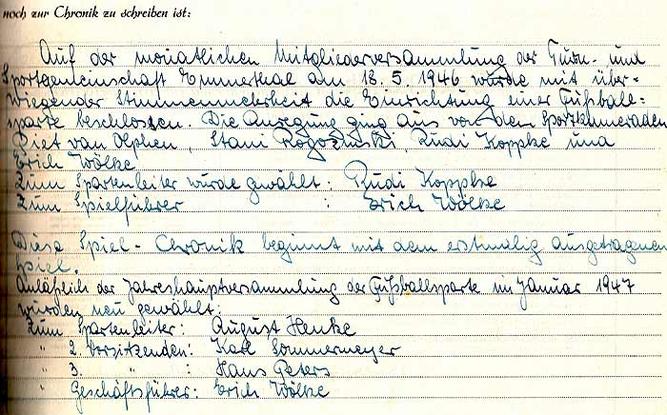 noch zur Chronik zu schreiben ist:
Auf der monatlichen Mitgliederversammlung der Turn- und
Sportgemeinschaft Emmerthal am 18.5.1946 wurde mit über-
wiegender Stimmenmehrheit die Einrichtung einer Fußball-
sparte beschlossen. Die Anregung ging aus von den Sportkameraden
Piet van Olphen, Stani Rogozinski, Rudi Koppke und
Erich Wölke
Zum Spartenleiter wurde gwählt: Rudi Koppke
Zum Spielführer : Erich Wölke
Diese Spiel-Chronik beginnt mit dem erstmalig ausgetragenen
Spiel.
Anläßlich der Jahreshauptversammlung der Fußballsparte im Januar 1947
wurden neu gewählt:
Zum Spartenleiter: August Henke
" 2. Vorsitzenden: Karl Sommermeyer
" 3. " : Hans Peters
" Geschäftsführer: Erich Wölke